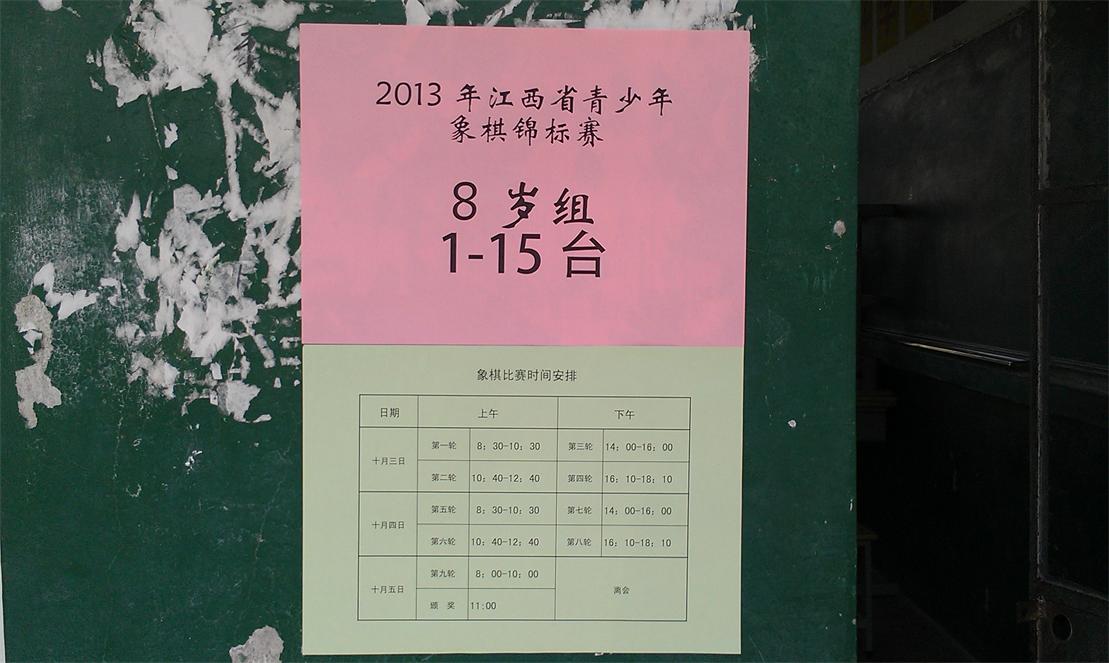 2013 年江西省青少年
象棋锦标赛
8 岁组
1-15 台
象棋比赛时间安排
日期 上午 下午
十月三日 第一轮 8：30-10：30 第三轮 14：00-16：00
第二轮 10：40-12：40 第四轮 16：10-18：10
十月四日 第五轮 8：30-10：30 第七轮 14：00-16：00
第六轮 10：40-12：40 第八轮 16：10-18：10
十月五日 第九轮 8：00-10：00 离会
颁 奖 11:00